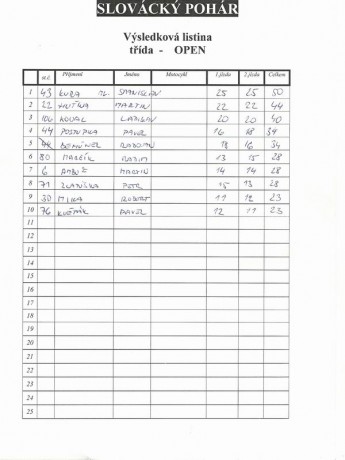 SLOVÁCKÝ POHÁR
Výsledková listina
třída - OPEN
Kč Příjmení Jméno Motocykl 1.jízda 2.jízda Celkem
1 43 KUBA ML. STANISLAV 25 25 50
2 22 MARTIN 22 22 44
3 LADISLAV 20 20 40
4 44 POSTUPKA PAVEL 16 18 34
5 RADOMÍR 18 16 34
6 80 RADIM 13 15 28
7 6 AMBOŽ MARTIN 14 14 28
8 71 PETR 15 13 28
9 30 MIKA ROBERT 11 12 23
10 76 PAVEL 12 11 23
11
12
13
14
15
16
17
18
19
20
21
22
23
24
25